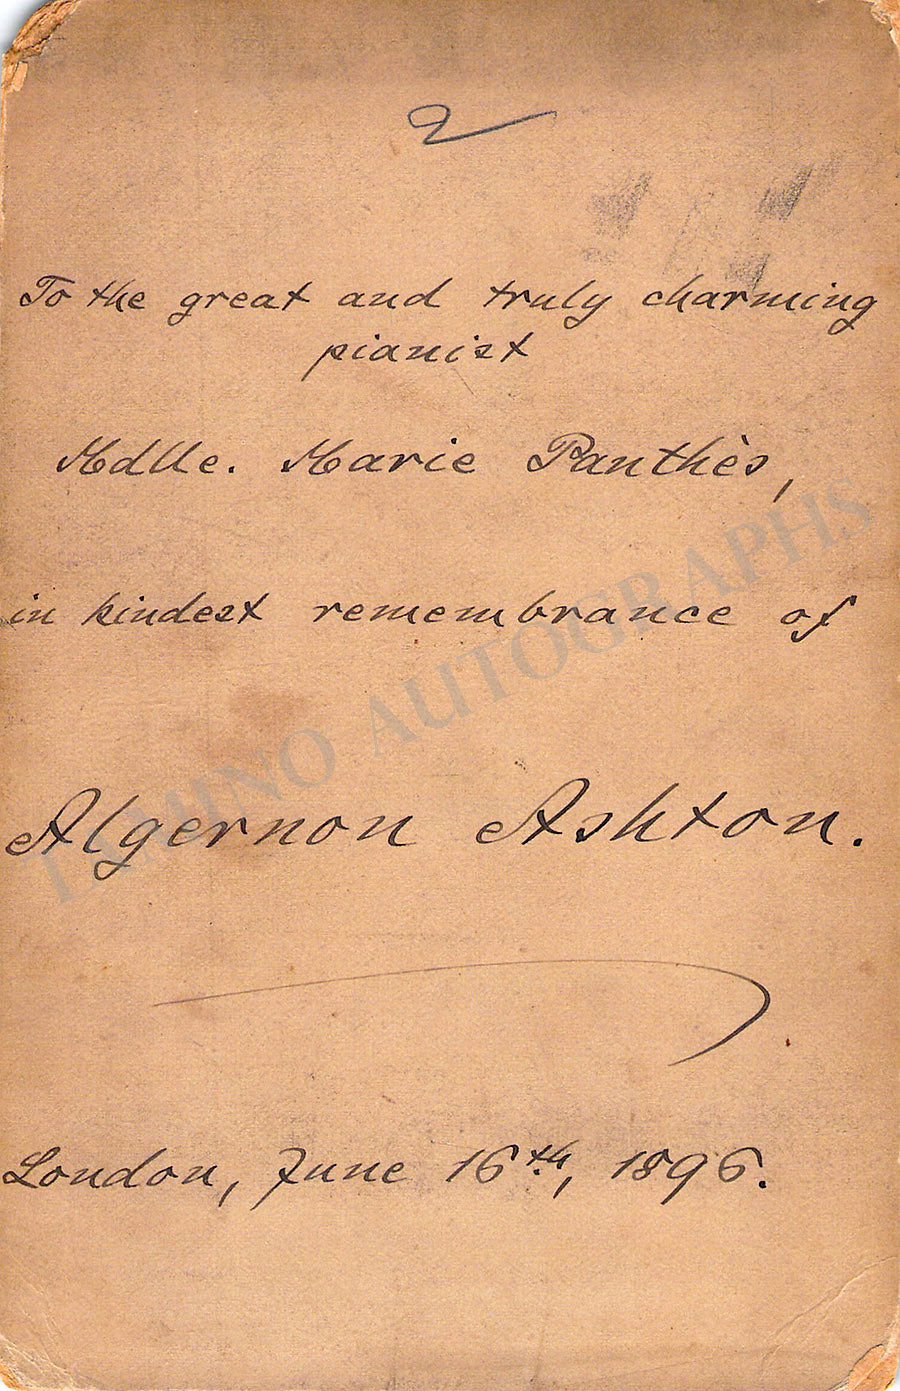 2
To the great and truly charming
pianist
Mdlle. Marie Panthès,
in kindest remembrance of
Algernon Ashton.
London, June 16th, 1896.
TAMINO AUTOGRAPHS